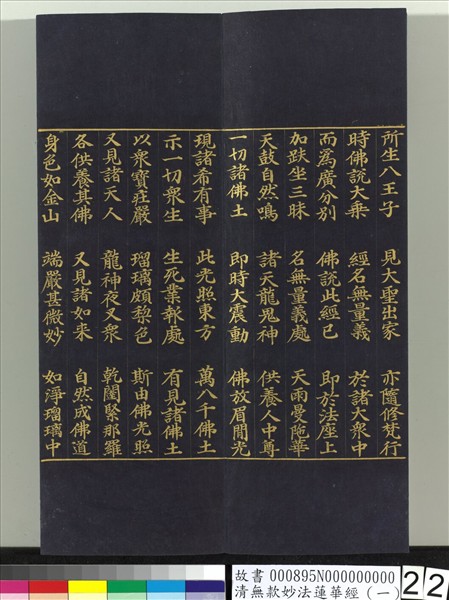 所生八王子　見大聖出家　亦隨修梵行
時佛說大乘　經名無量義　於諸大眾中
而為廣分別　佛說此經已　即於法座上
加趺坐三昧　名無量義處　天雨曼陁華
天鼓自然鳴　諸天龍鬼神　供養人中尊
一切諸佛土　即時大震動　佛放眉間光
現諸希有事　此光照東方　萬八千佛土
示一切眾生　生死業報處　有見諸佛土
以眾寶莊嚴　瑠璃頗棃色　斯由佛光照
又見諸天人　龍神夜叉眾　乾闥緊那羅
各供養其佛　又見諸如來　自然成佛道
身色如金山　端嚴甚微妙　如淨瑠璃中
故書 000895N000000000
清無款妙法蓮華經（一）
22